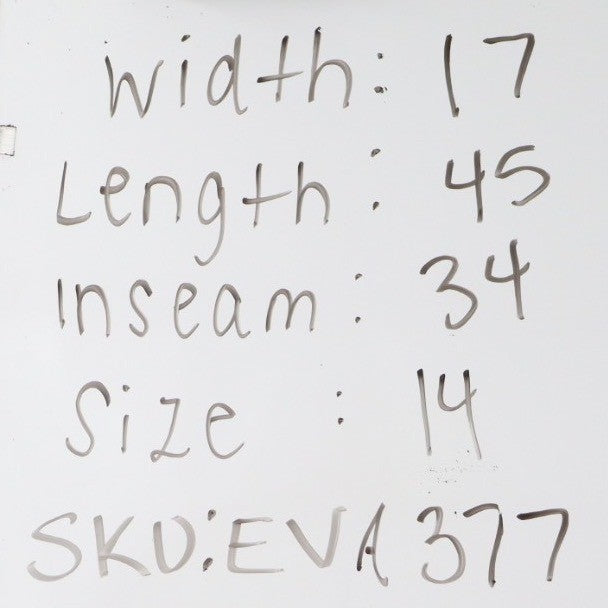 Width: 17
Length: 45
Inseam: 34
Size : 14
SKU:EVA377